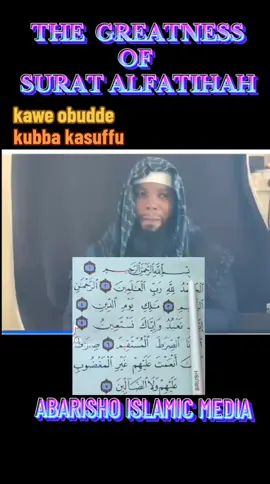 THE GREATNESS
OF
SURAT ALFATIHAH
kawe obudde
kubba kasuffu
بِسْمِ اللَّهِ الرَّحْمَٰنِ الرَّحِيمِ
الْحَمْدُ لِلَّهِ رَبِّ الْعَالَمِينَ الرَّحْمَٰنِ
مَالِكِ يَوْمِ الدِّينِ
نَعْبُدُ وَإِيَّاكَ نَسْتَعِينُ
الصِّرَاطَ الْمُسْتَقِيمَ صِرَاطَ
أَنْعَمْتَ عَلَيْهِمْ غَيْرِ الْمَغْضُوبِ
عَلَيْهِمْ وَلَا الضَّالِّينَ
ABARISHO ISLAMIC MEDIA